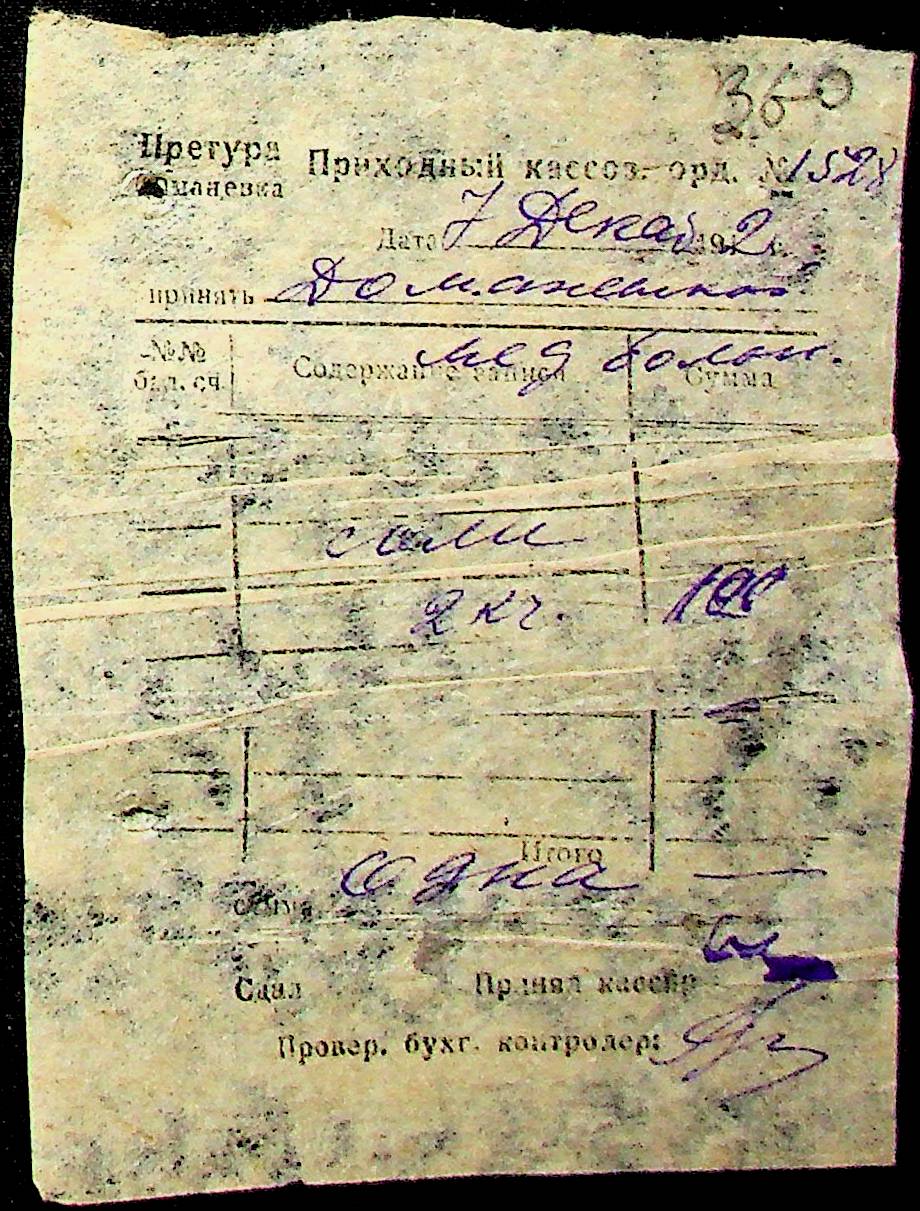 360
Претура Приходный кассов. орд. № 1528
Доманевка
Дата 7 Декаб 1942 г.
принять Доманевской
мед
№№ бал. сч. Содержание записи Сумма
соли
2 кг. 100
Итого
Сумма Одна
Сдал Принял кассир
Провер. бухг. контролер: